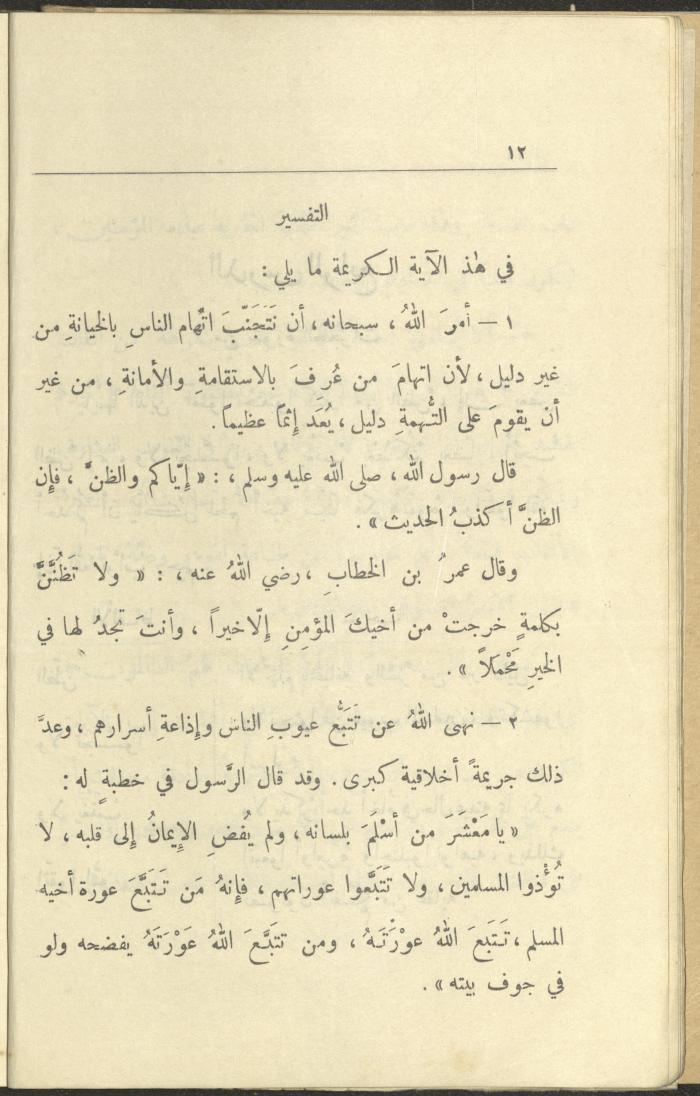 ١٢
التفسير
في هذ الآية الكريمة ما يلي :
١ — أمرَ اللهُ ، سبحانه ، أن نَتَجَنّبَ اتّهام الناسِ بالخيانةِ من
غير دليل ، لأن اتهامَ من عُرِفَ بالاستقامةِ والأمانةِ ، من غير
أن يقومَ على التُّهمةِ دليل ، يُعَد إِثمًا عظيمًا .
قال رسول الله ، صلى الله عليه وسلم ، : « إِيّاكم والظنَّ ، فإِن
الظنَّ أكذبُ الحديث » .
وقال عمرُ بن الخطابِ ، رضي اللهُ عنه ، : « ولا تَظُنَّنَّ
بكلمةٍ خرجتْ من أخيكَ المؤمِنِ إِلّا خيراً ، وأنتَ تجدُ لها في
الخيرِ مَحْمَلاً » .
٢ — نهى اللهُ عن تَتَبُّع عيوبِ الناس وإِذاعةِ أسرارهم ، وعدَّ
ذلك جريمةً أخلاقية كبرى . وقد قال الرَّسول في خطبةٍ له :
« يا مَعْشَرَ من أَسْلَمَ بلسانه ، ولم يُفضِ الإِيمانُ إِلى قلبه ، لا
تُؤْذوا المسلمين ، ولا تَتَبَّعوا عوراتهم ، فإِنهُ مَن تَتَبَّعَ عورة أخيه
المسلم ، تَتَبَعَ اللهُ عوْرَتَهُ ، ومن تتبَّعَ اللهُ عَوْرَتَهُ يفضحه ولو
في جوف بيته » .